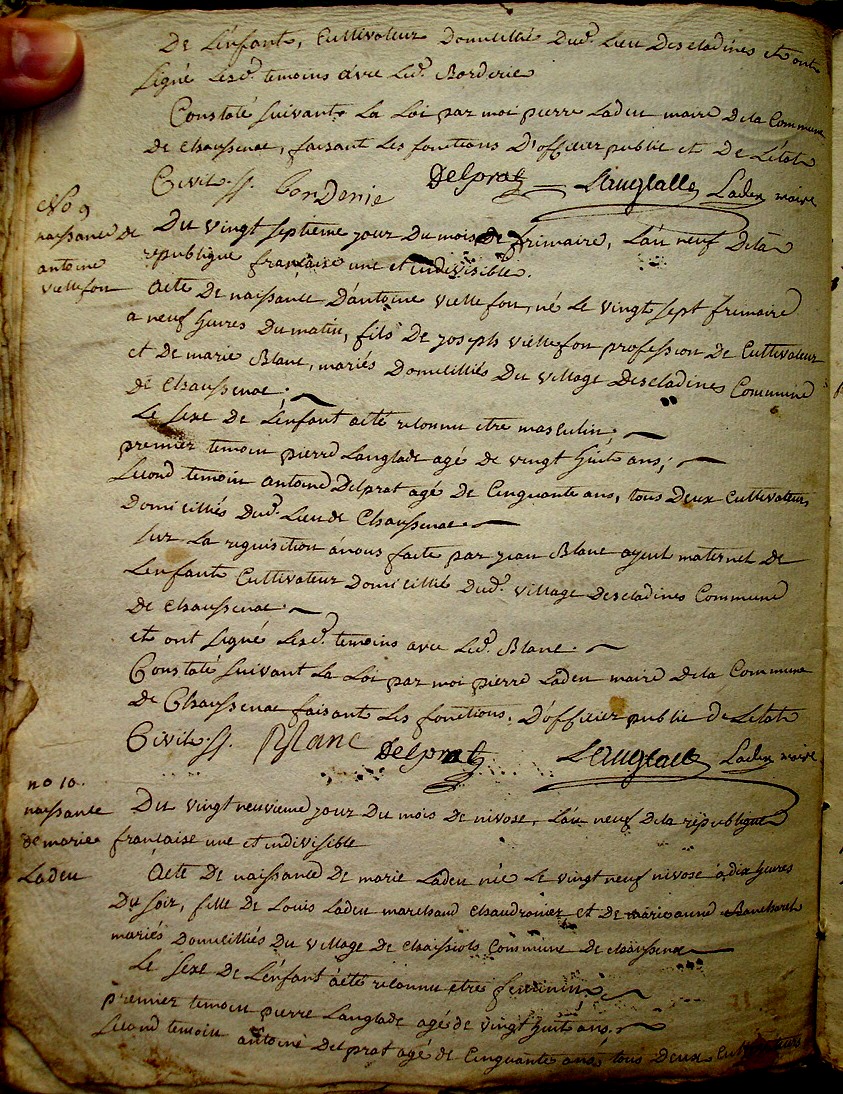 De L'enfant, Cultivateur Domicillié Dud. Lieu Descladines et ont
signé Lesd. temoins avec Led. Borderie
Constaté suivant La Loi par moi pierre Ladeu maire Dela Commune
de Chaussenac, faisant Les fonctions D'officier public et De L'état
Civil. ff. Borderie Delprat Langlade Ladeu maire
No 9
naissance de
antoine
viellefon
Du vingt septieme jour Du mois De frimaire, L'an neuf Dela
republique francaise une et indivisible.
Acte De naissance D'antoine viellefon, né Le vingt sept frimaire
a neuf heures Du matin, fils De joseph viellefon profession De Cultivateur
et De marie Blanc, mariés Domicilliés Du village Descladines Commune
de Chaussenac;
Le sexe De L'enfant a été reconnu etre masculin;
premier temoin pierre Langlade agé De vingt huit ans;
second temoin antoine Delprat agé De Cinquante ans, tous Deux Cultivateurs
Domicilliés Dud. Lieu de Chaussenac.
sur La requisition à nous faite par jean Blanc ayeul maternel De
L'enfant Cultivateur Domicillié Dud. village Descladines Commune
De Chaussenac
et ont signé Lesd. temoins avec Led. Blanc.
Constaté suivant La Loi par moi pierre Ladeu maire Dela Commune
De Chaussenac faisant Les fonctions D'officier public De L'etat
Civil. ff. Blanc Delprat Langlade Ladeu maire
no 10.
naissance
de marie
Ladeu
Du vingt neuvieme jour Du mois De nivose, L'an neuf Dela republique
francaise une et indivisible
Acte De naissance De marie Ladeu née Le vingt neuf nivose à dix heures
Du soir, fille De Louis Ladeu marchand Chaudronier et De marieanne
mariés Domicilliés Du village De Commune De Chaussenac
Le sexe De L'enfant a été reconnu etre feminin
premier temoin pierre Langlade agé de vingt huit ans.
second temoin antoine Delprat agé de Cinquante ans, tous Deux Cultivateurs